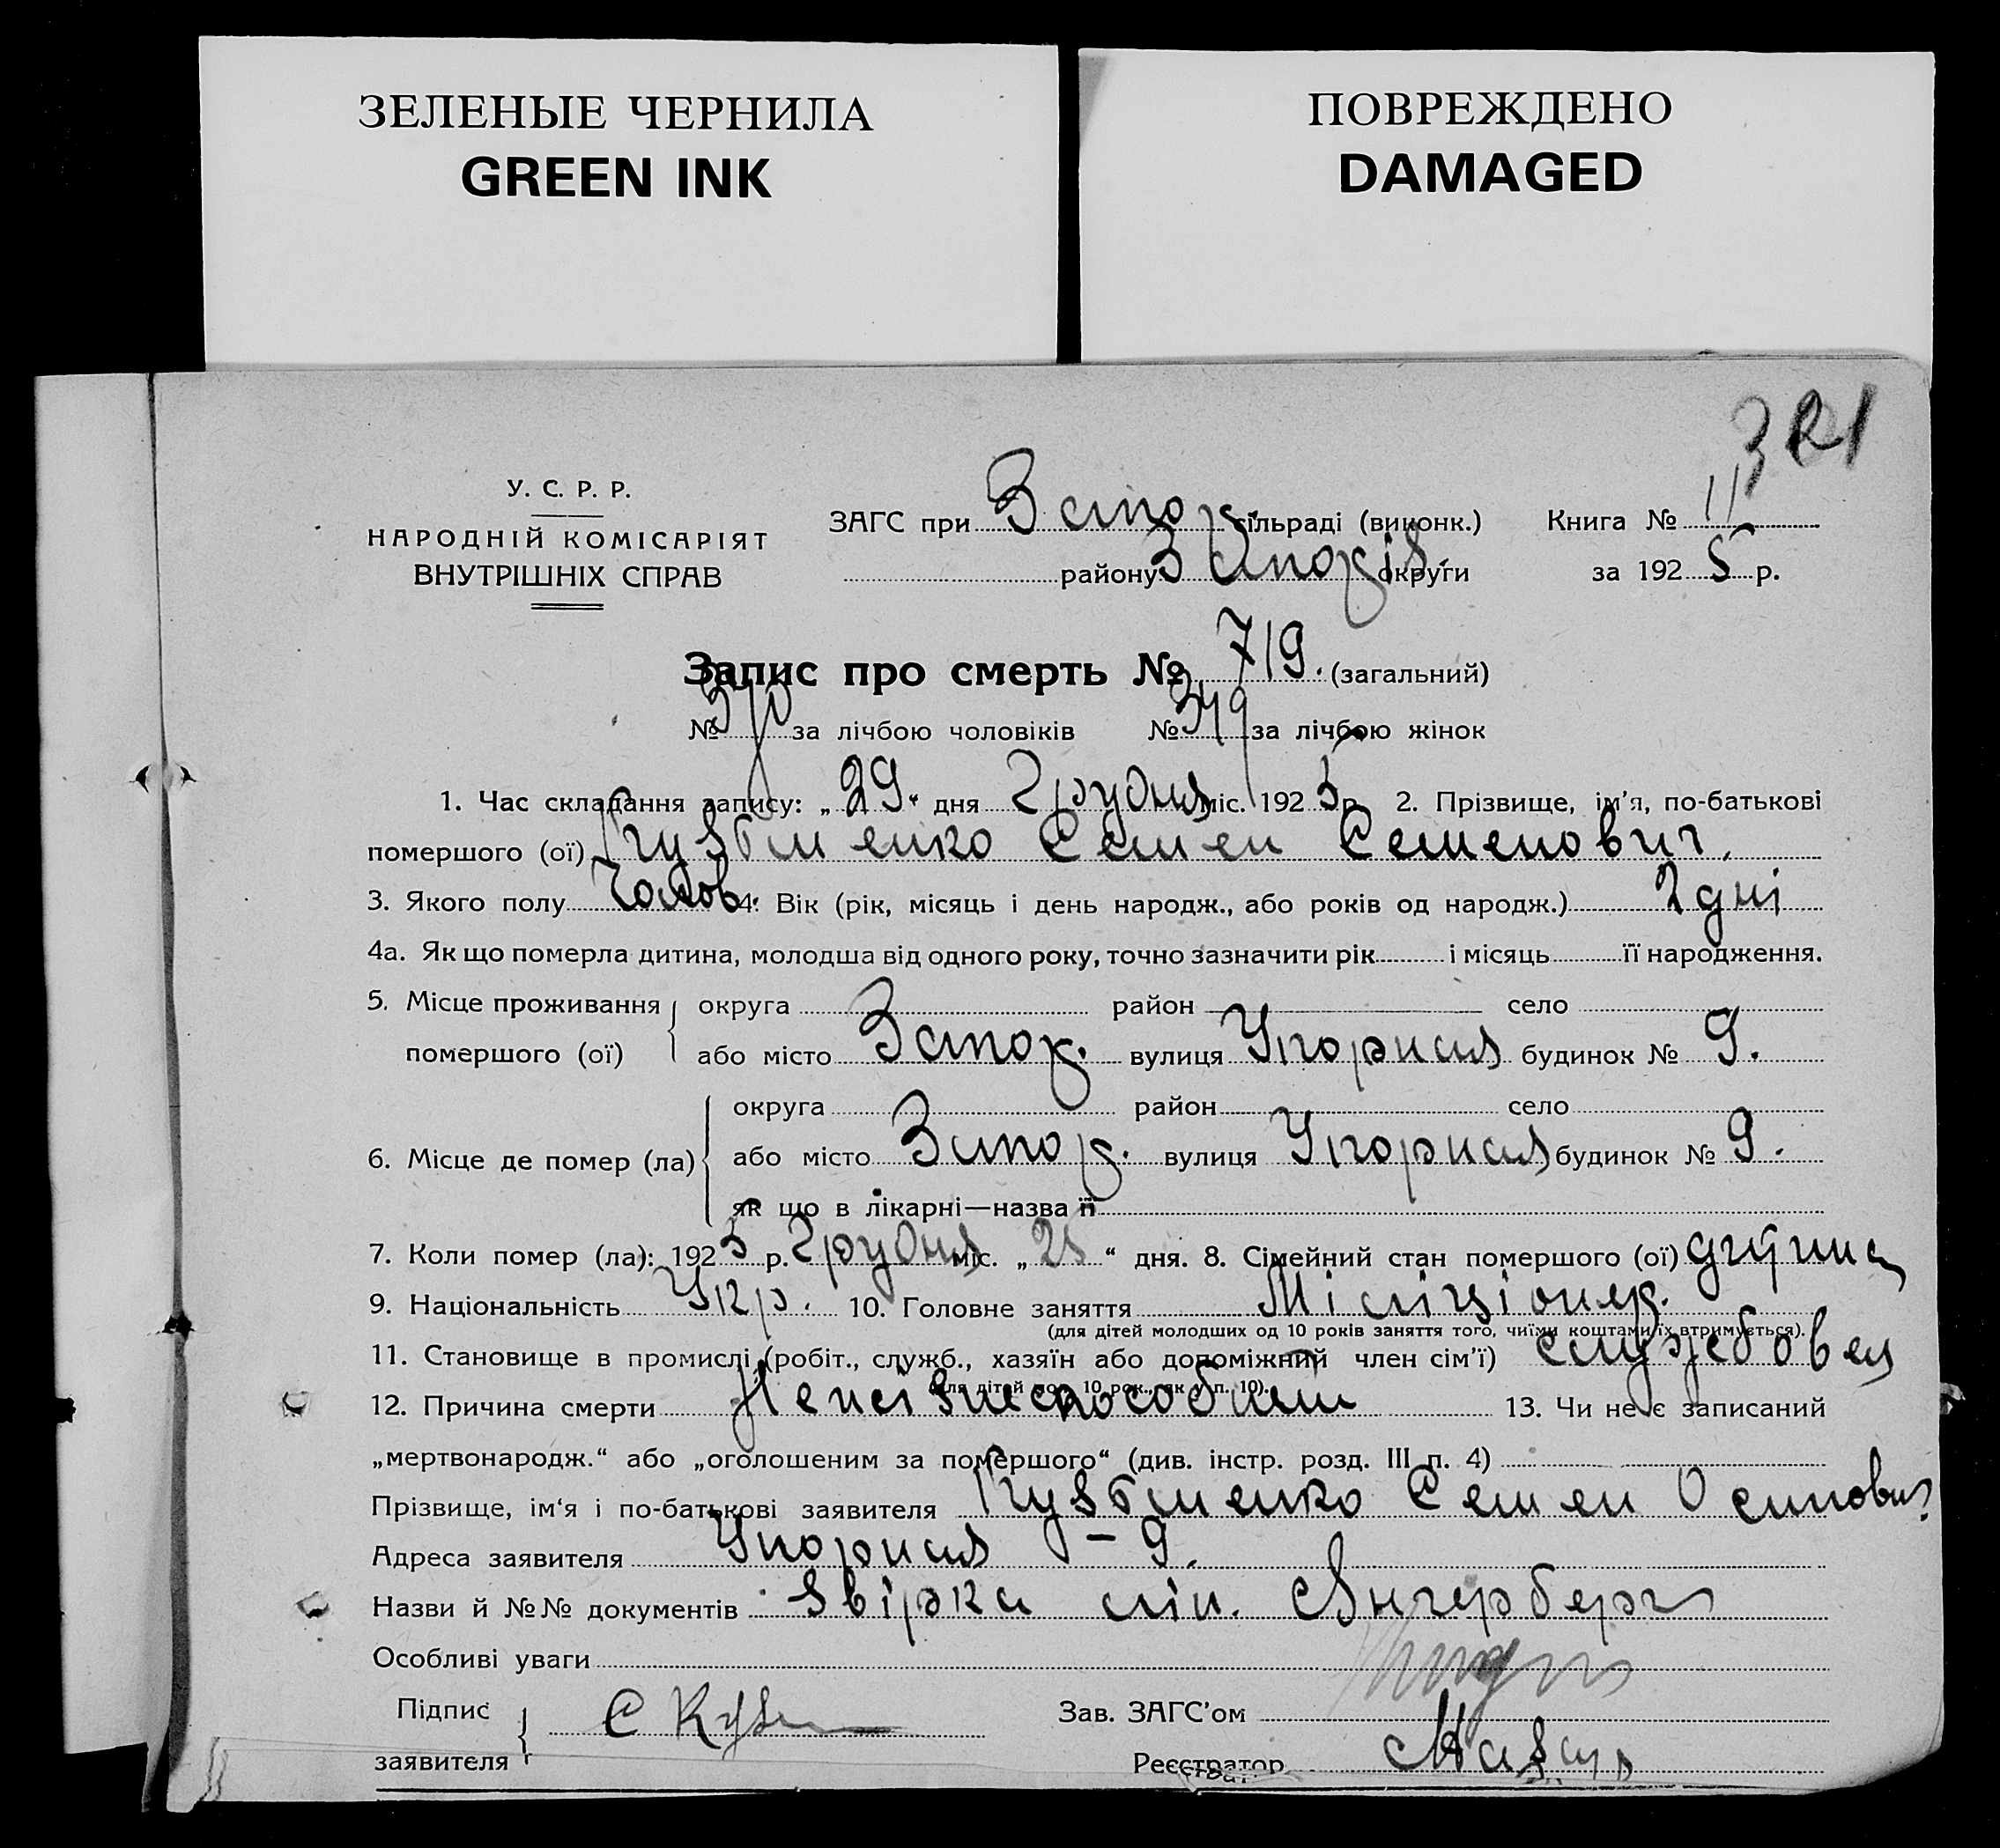 ЗЕЛЕНЫЕ ЧЕРНИЛА
GREEN INK
ПОВРЕЖДЕНО
DAMAGED
321
У. С. Р. Р.
НАРОДНІЙ КОМІСАРІЯТ
ВНУТРІШНІХ СПРАВ
ЗАГС при Запор. сільраді (виконк.) Книга № 11
району Запоріз. округи за 1925 р.
Запис про смерть № 719. (загальний)
№ 370 за лічбою чоловіків № 349 за лічбою жінок
1. Час складання запису: „29“ дня Грудня міс. 1925 р. 2. Прізвище, ім'я, по-батькові
помершого (ої) Кузьменко Семен Семенович.
3. Якого полу Чолов. 4. Вік (рік, місяць і день народж., або років од народж.) 2 дні
4а. Як що померла дитина, молодша від одного року, точно зазначити рік і місяць її народження.
5. Місце проживання округа район село
помершого (ої) або місто Запор. вулиця Упорная будинок № 9.
округа район село
6. Місце де помер (ла) або місто Запор. вулиця Упорная будинок № 9.
як що в лікарні—назва її
7. Коли помер (ла): 1925 р. Грудня міс. „25“ дня. 8. Сімейний стан помершого (ої) дитина
9. Національність Укр. 10. Головне заняття Міліціонер.
(для дітей молодших од 10 років заняття того, чиїми коштами їх втримується).
11. Становище в промислі (робіт., служб., хазяїн або допоміжний член сім'ї) службовец
(для дітей мол. 10 рок., як у п. 10).
12. Причина смерти 13. Чи не є записаний
„мертвонародж.“ або „оголошеним за помершого“ (див. інстр. розд. III п. 4)
Прізвище, ім'я і по-батькові заявителя Кузьменко Семен Осипович
Адреса заявителя Упорная – 9.
Назви й №№ документів звірка
Особливі уваги
Підпис С Кузьм Зав. ЗАГС'ом
заявителя Реєстратор